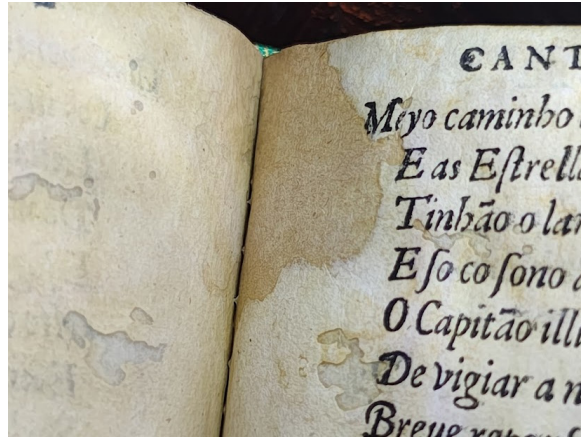 CANT
Meyo caminho
E as Eſtrell
Tinhão o lar
E ſo co ſono
O Capitão illu
De vigiar a n
Breue repouſ